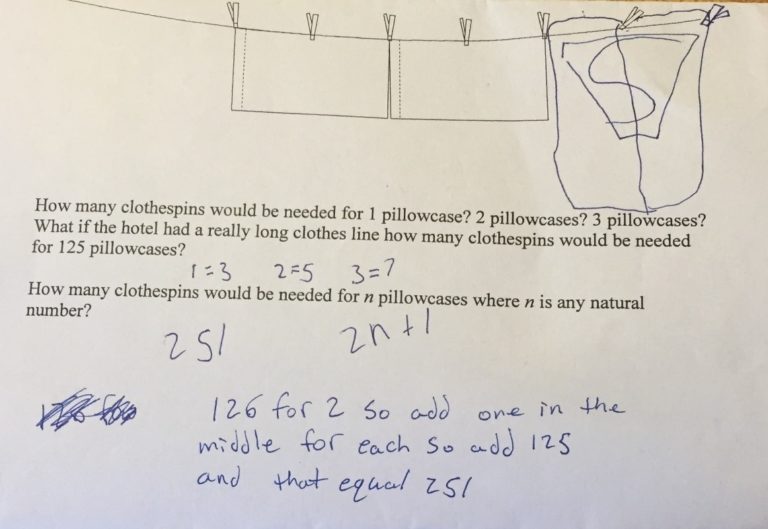 S
How many clothespins would be needed for 1 pillowcase? 2 pillowcases? 3 pillowcases?
What if the hotel had a really long clothes line how many clothespins would be needed
for 125 pillowcases?
1=3 2=5 3=7
How many clothespins would be needed for n pillowcases where n is any natural
number?
251 2n+1
126 for 2 so add one in the
middle for each so add 125
and that equal 251